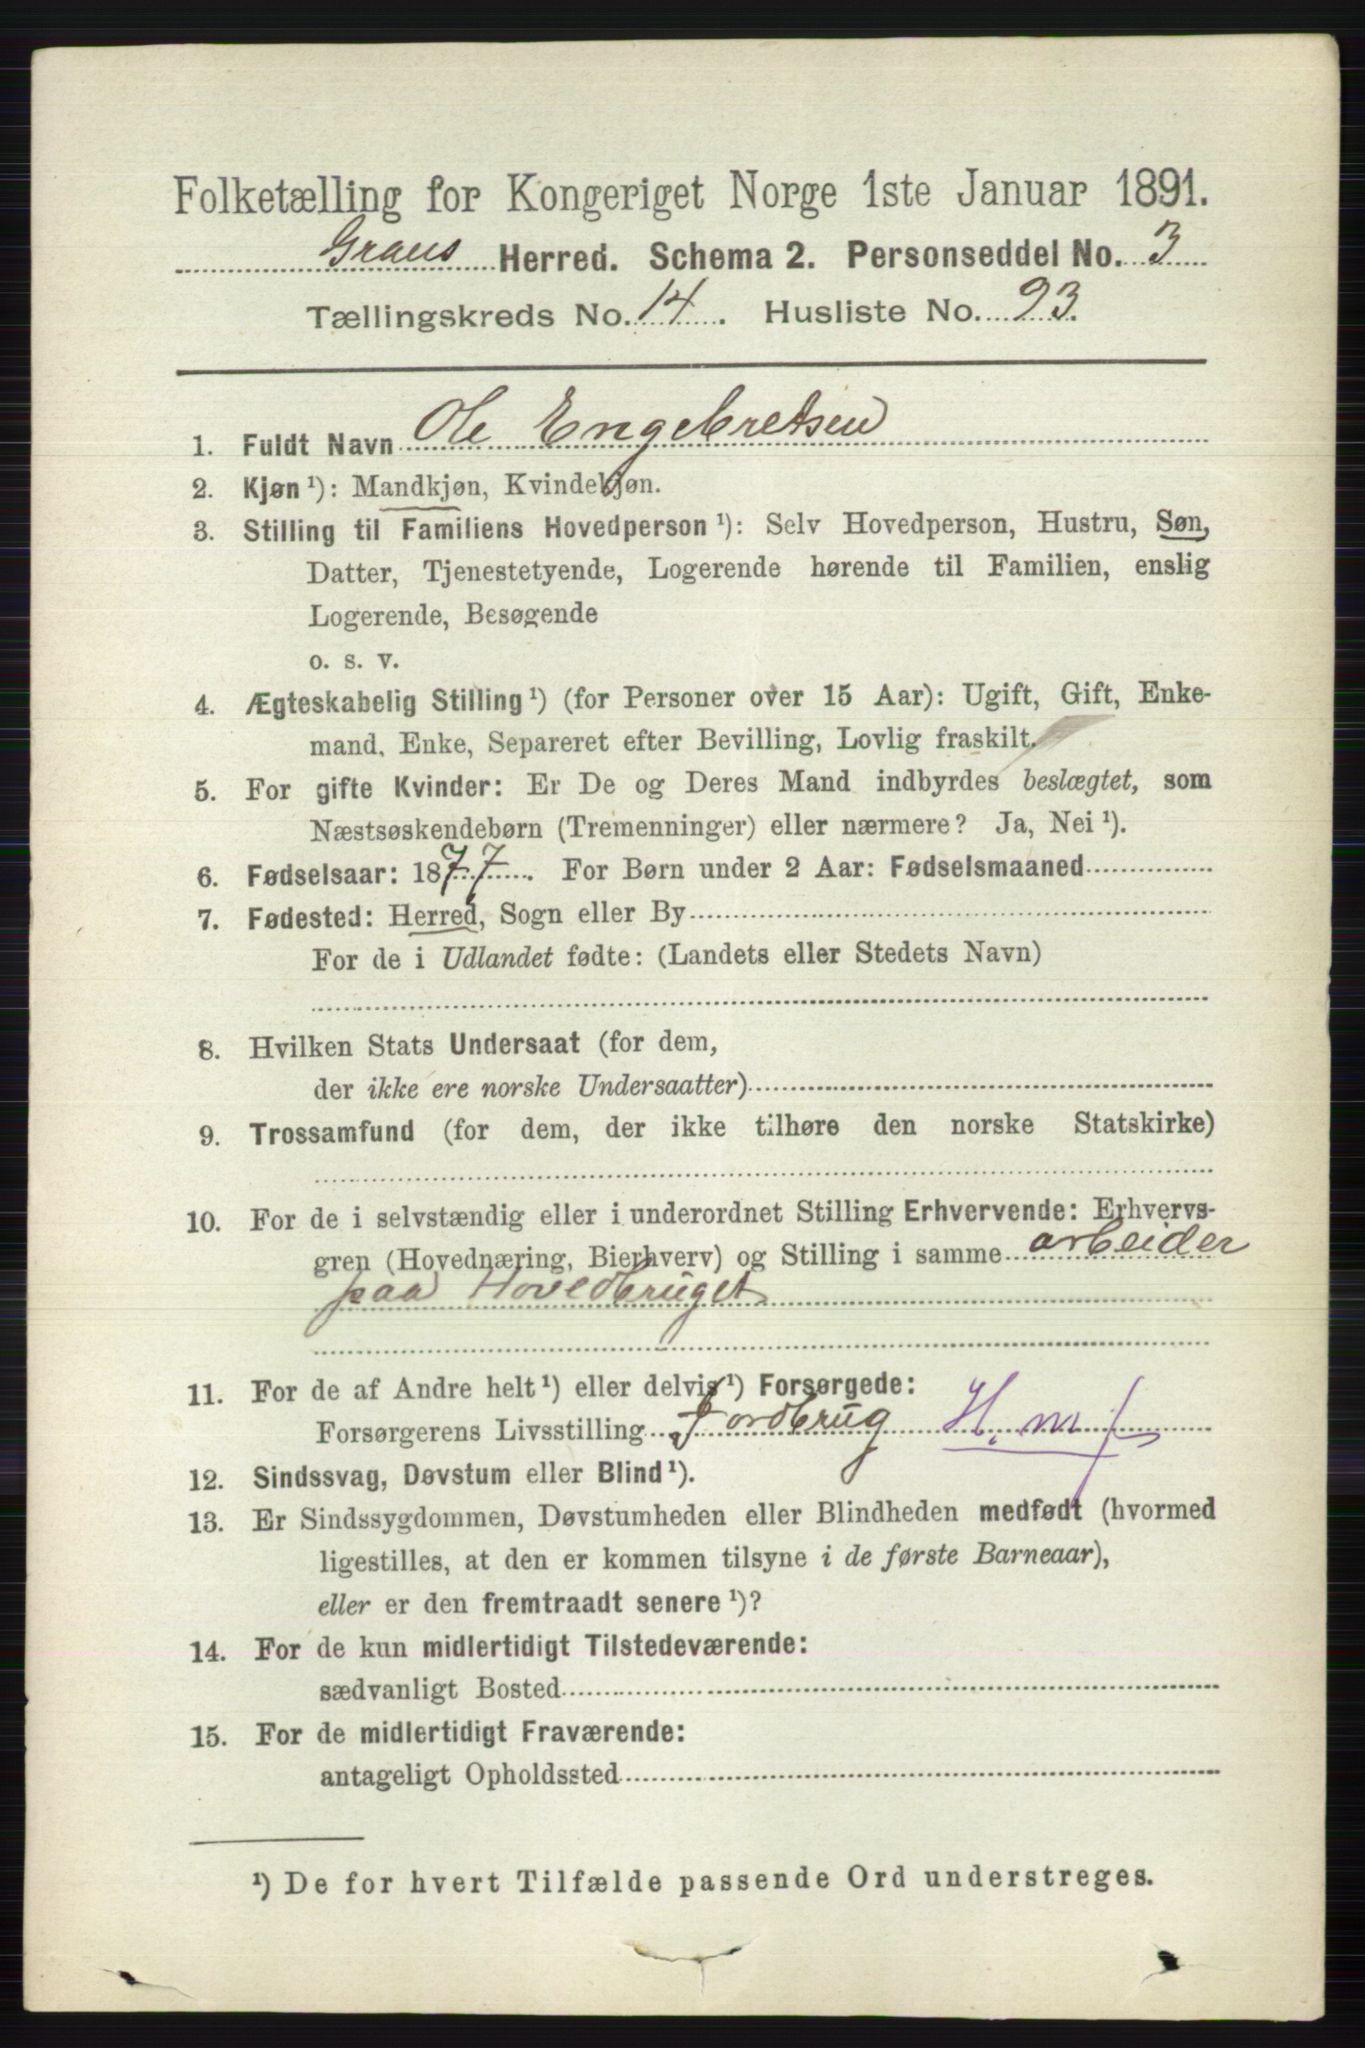 Folketælling for Kongeriget Norge 1ste Januar 1891.
Grans Herred. Schema 2. Personseddel No. 3
Tællingskreds No. 14. Husliste No. 93.
1. Fuldt Navn Ole Engebretsen
2. Kjøn ¹): Mandkjøn, Kvindekjøn.
3. Stilling til Familiens Hovedperson ¹): Selv Hovedperson, Hustru, Søn,
Datter, Tjenestetyende, Logerende hørende til Familien, enslig
Logerende, Besøgende
o. s. v.
4. Ægteskabelig Stilling ¹) (for Personer over 15 Aar): Ugift, Gift, Enke-
mand, Enke, Separeret efter Bevilling, Lovlig fraskilt.
5. For gifte Kvinder: Er De og Deres Mand indbyrdes beslægtet, som
Næstsøskendebørn (Tremenninger) eller nærmere? Ja, Nei ¹).
6. Fødselsaar: 1877. For Børn under 2 Aar: Fødselsmaaned
7. Fødested: Herred, Sogn eller By
For de i Udlandet fødte: (Landets eller Stedets Navn)
8. Hvilken Stats Undersaat (for dem,
der ikke ere norske Undersaatter)
9. Trossamfund (for dem, der ikke tilhøre den norske Statskirke)
10. For de i selvstændig eller i underordnet Stilling Erhvervende: Erhvervs-
gren (Hovednæring, Bierhverv) og Stilling i samme arbeider
paa Hovedbruget
11. For de af Andre helt ¹) eller delvis ¹) Forsørgede:
Forsørgerens Livsstilling Jordbrug H. m f
12. Sindssvag, Døvstum eller Blind ¹).
13. Er Sindssygdommen, Døvstumheden eller Blindheden medfødt (hvormed
ligestilles, at den er kommen tilsyne i de første Barneaar),
eller er den fremtraadt senere ¹)?
14. For de kun midlertidigt Tilstedeværende:
sædvanligt Bosted
15. For de midlertidigt Fraværende:
antageligt Opholdssted
¹) De for hvert Tilfælde passende Ord understreges.